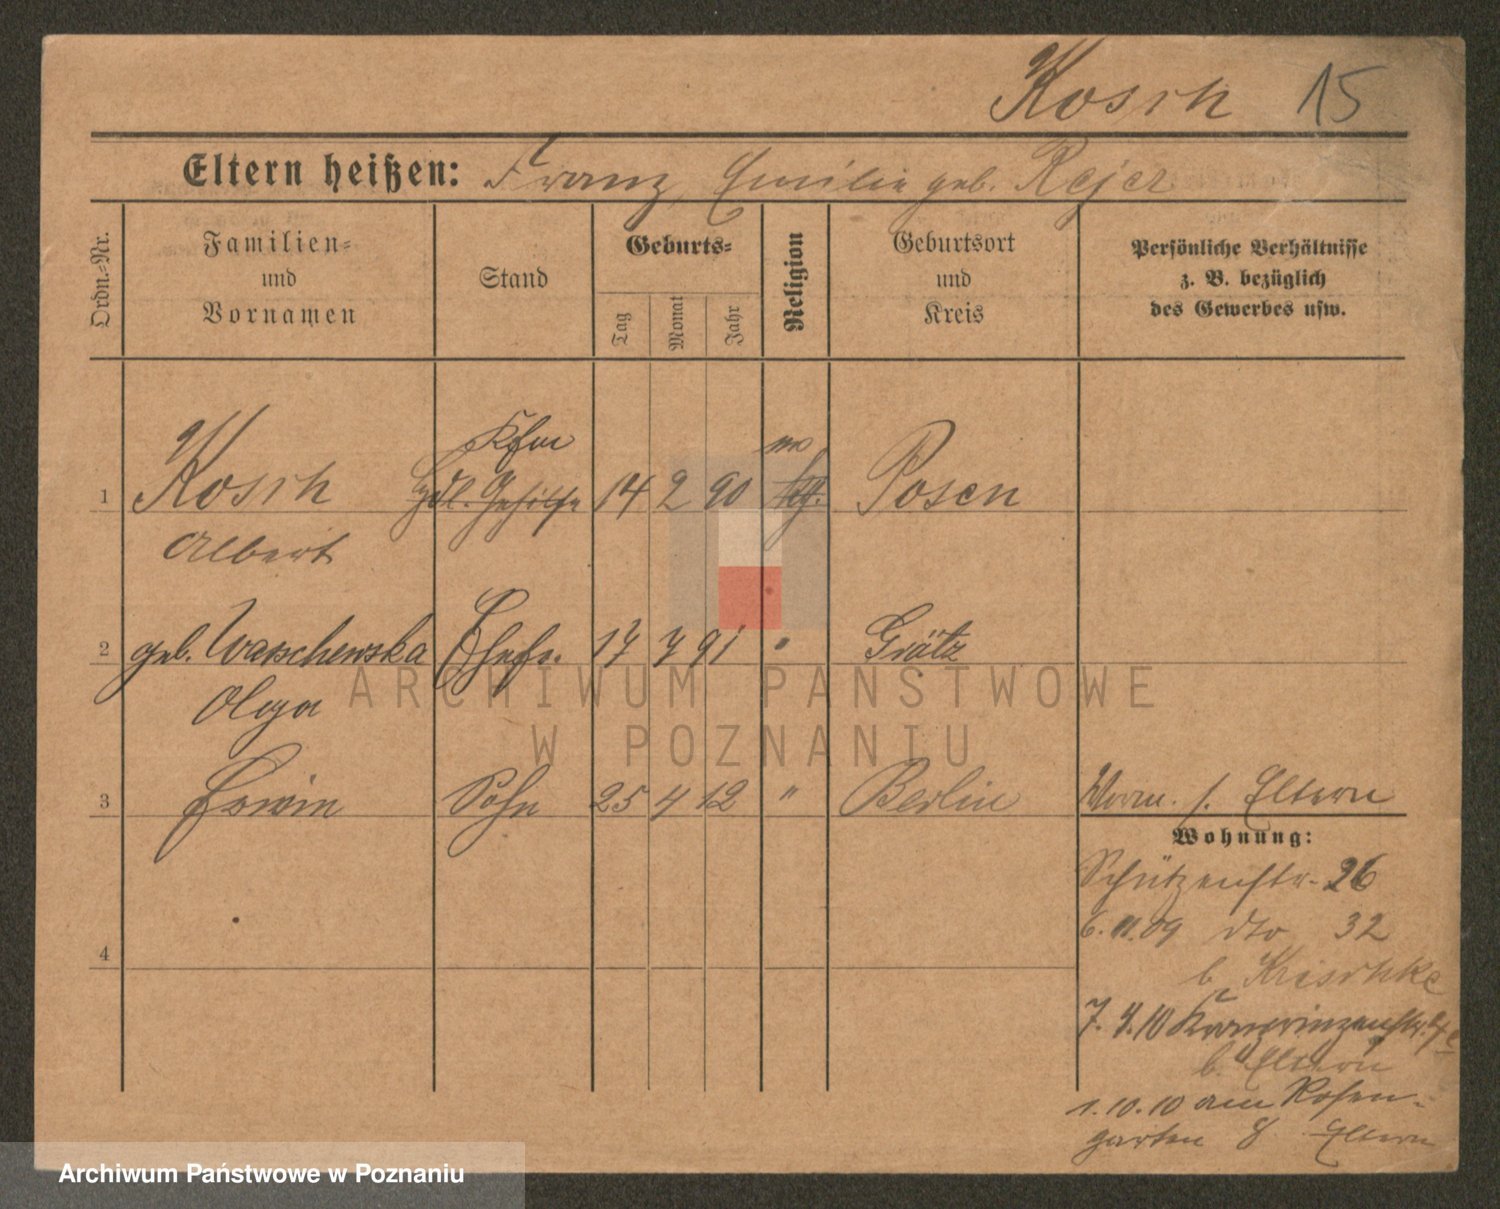 Kosch 15
Eltern heißen: Franz, Emilie geb. Rejer
Ordn.-Nr.
Familien-
und
Vornamen
Stand
Geburts-
Tag
Monat
Jahr
Religion
Geburtsort
und
Kreis
Persönliche Verhältnisse
z. B. bezüglich
des Gewerbes usw.
Kfm
1 Kosch Hdl. Gehilfe 14 2 90 Posen
Albert
2 geb. Waschewska Ehefr. 17 7 91 " Grätz
Olga
3 Erwin Sohn 25 4 12 " Berlin Verm. s. Eltern
Wohnung:
Schützenstr. 26
6. 11. 09 dto 32
b. Krischke
4
7. 4. 10 Kronprinzenstr.
b. Eltern
1. 10. 10 am Rosen-
garten 8 Eltern
ARCHIWUM PAŃSTWOWE
W POZNANIU
Archiwum Państwowe w Poznaniu